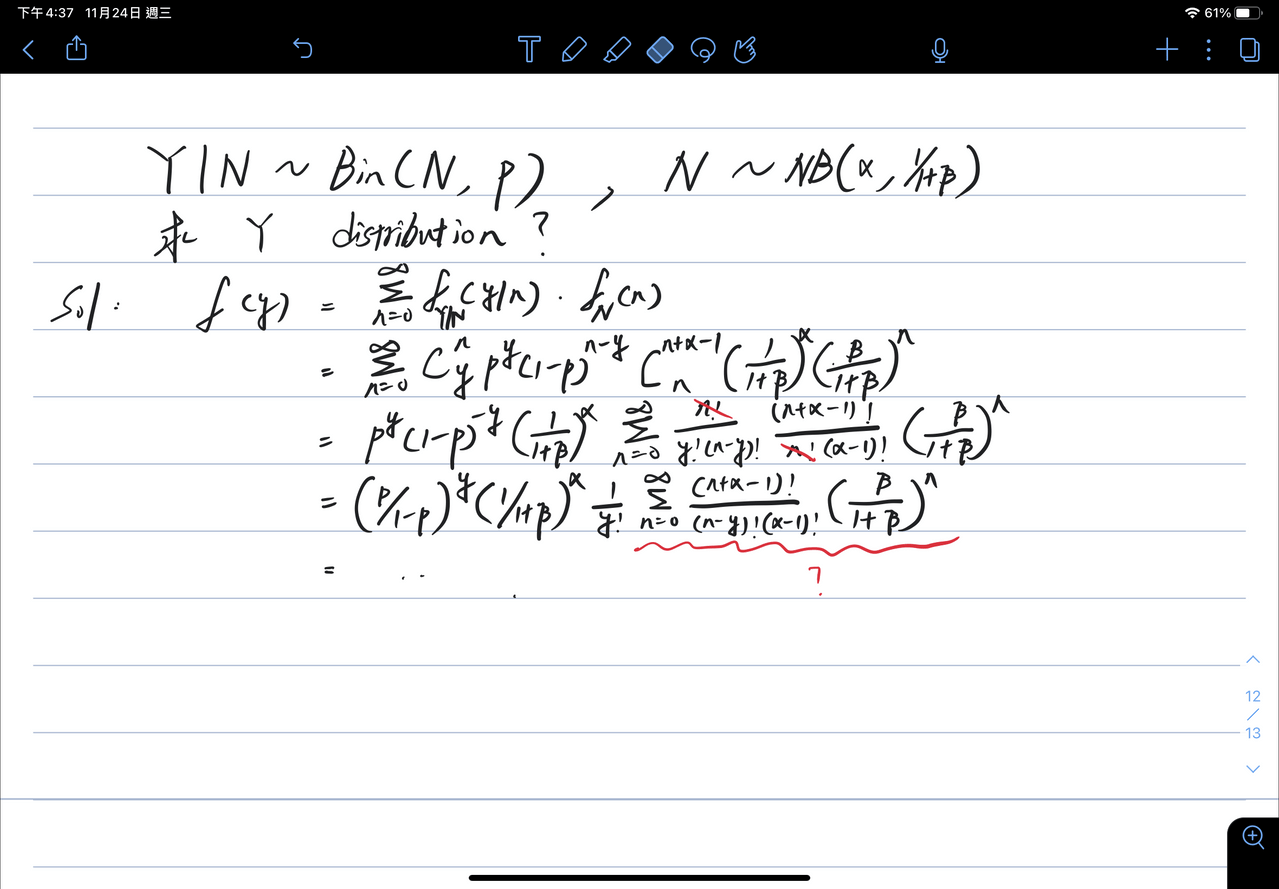 下午4:37 11月24日 週三 61%
T
Y|N ~ Bin(N, p) , N ~ NB(α, 1/1+β)
求 Y distribution ?
Sol: f(y) = ∑_{n=0}^{∞} f_{Y|N}(y|n) · f_N(n)
= ∑_{n=0}^{∞} C_y^n p^y (1-p)^{n-y} C_n^{n+α-1} (1/(1+β))^α (β/(1+β))^n
= p^y (1-p)^{-y} (1/(1+β))^α ∑_{n=0}^{∞} n!/(y!(n-y)!) (n+α-1)!/(n!(α-1)!) (β/(1+β))^n
= (p/1-p)^y (1/1+β)^α 1/y! ∑_{n=0}^{∞} (n+α-1)!/((n-y)!(α-1)!) (β/(1+β))^n
= ...
?
12
/
13